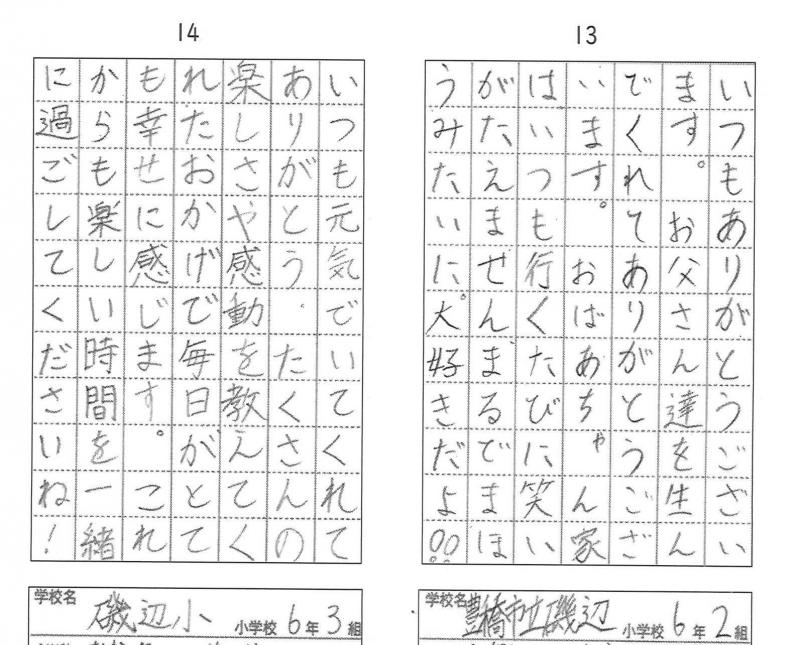 13
いつもありがとうござい
ます。お父さん達を生ん
でくれてありがとうござ
います。おばあちゃん家
はいつも行くたびに笑い
がたえまぜんまるでまほ
うみたいに。大好きだよ!!
学校名
豊橋市立磯辺 小学校 6年2組
14
いつも元気でいてくれて
ありがとう.たくさんの
楽しさや感動を教えてく
れたおかげで毎日がとて
も幸せに感じます。これ
からも楽しい時間を一緒
に過ごしてくださいね!
学校名
磯辺小 小学校 6年3組